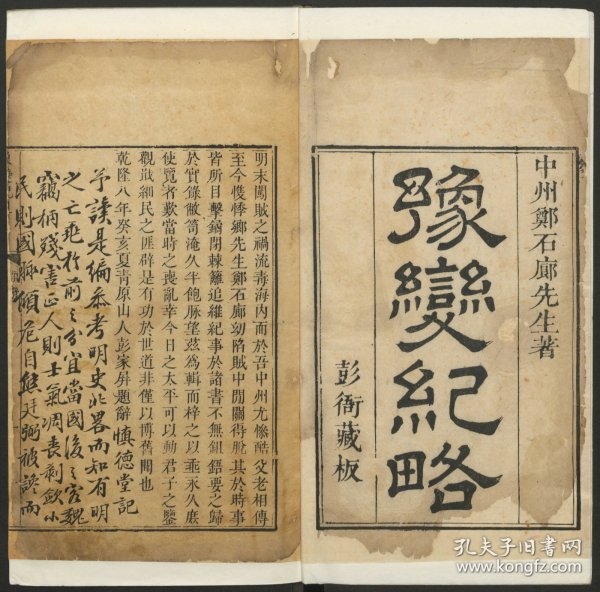 中州鄭石廊先生著
豫變紀略
彭衙藏板
明末闖賊之禍流毒海内而於吾中州尤慘酷父老相傳
至今悽悸鄉先生鄭石廊幼陷賊中間關得脫其於時事
皆所目擊鍵閉棘籬追維紀事於諸書不無鉏鋙要之歸
於實錄敝笥淹久半飽脈望茲為輯而梓之以垂永久庶
使覽者歎當時之喪亂幸今日之太平可以動君子之鑒
觀戢細民之匪辟是有功於世道非僅以博舊聞也
乾隆八年癸亥夏青原山人彭家屏題辭
慎德堂記
予讀是編參考明史北畧而知有明
之亡死於前之分宜當國後之客魏
竊柄殘害正人則士氣凋喪剥歛小
民則國脈傾危自熊廷弼被讒而
孔夫子旧書网
www.kongfz.com